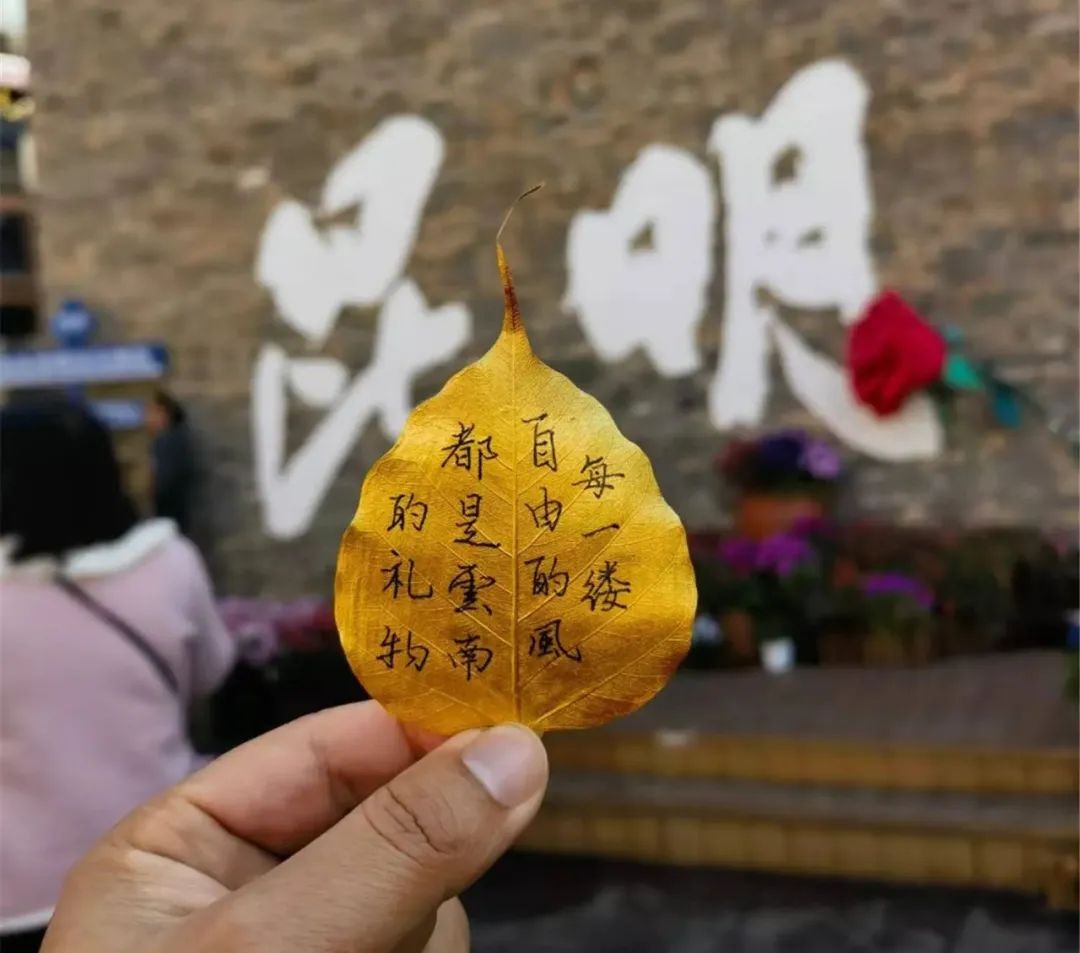 昆明
每一缕
自由的風
都是雲南
的礼物